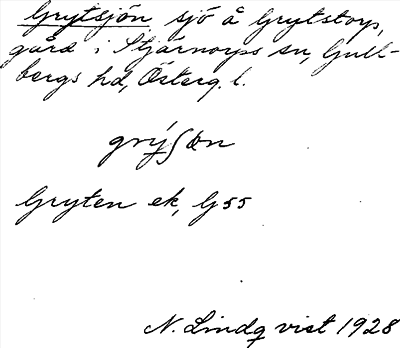 Grytsjön sjö å Grytstorp,
gård i Stjärnorps sn, Gull-
bergs hd, Österg. l.
grýʃøn
Gryten ek, G 55
N. Lindqvist 1928